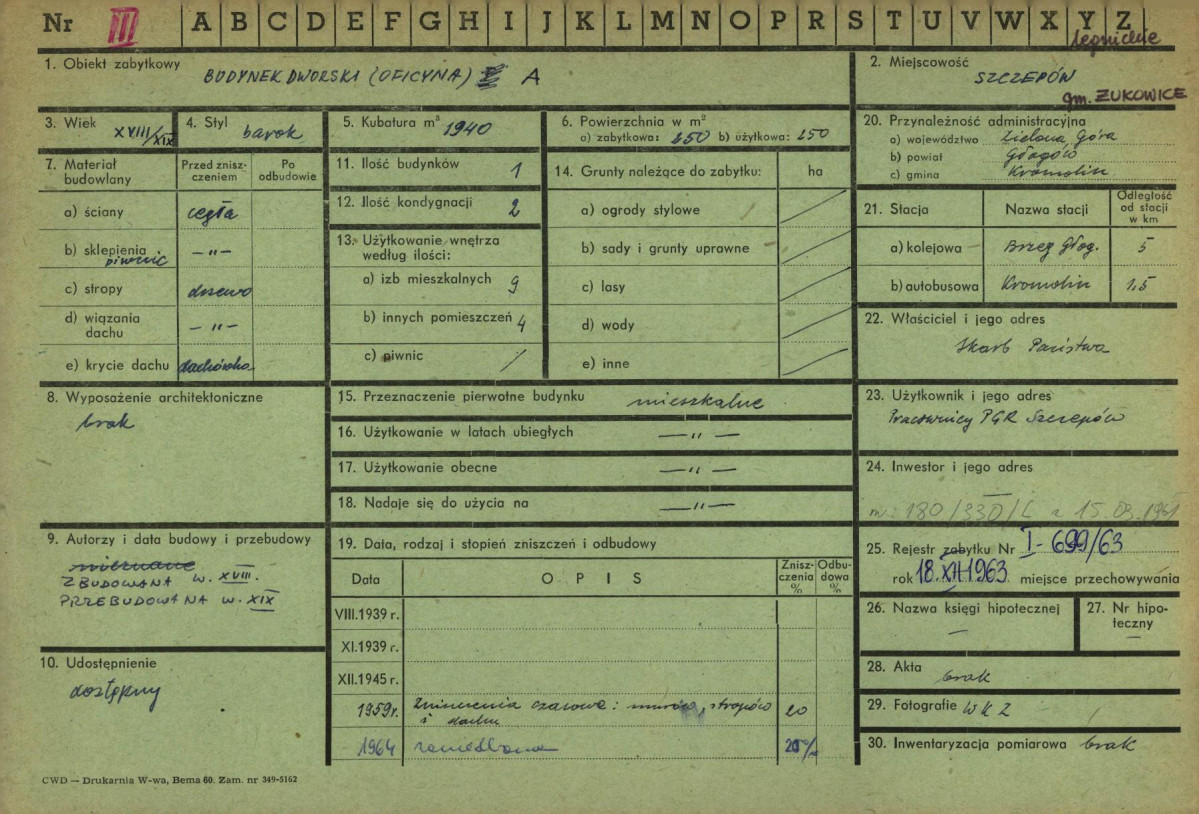 Nr III A B C D E F G H I J K L M N O P R S T U V W X Y Z
legnickie
1. Obiekt zabytkowy
BUDYNEK DWORSKI (OFICYNA) A
2. Miejscowość
SZCZEPÓW
gm. ŻUKOWICE
3. Wiek XVIII/XIX
4. Styl barok
5. Kubatura m³ 1940
6. Powierzchnia w m²
a) zabytkowa: 250 b) użytkowa: 250
20. Przynależność administracyjna
a) województwo Zielona Góra
b) powiat Głogów
c) gmina Kromolin
7. Materiał budowlany
Przed zniszczeniem
Po odbudowie
a) ściany cegła
b) sklepienia piwnic —„—
c) stropy drzewo
d) wiązania dachu —„—
e) krycie dachu dachówka
11. Ilość budynków 1
12. Ilość kondygnacji 2
13. Użytkowanie wnętrza
według ilości:
a) izb mieszkalnych 9
b) innych pomieszczeń 4
c) piwnic /
14. Grunty należące do zabytku: ha
a) ogrody stylowe
b) sady i grunty uprawne
c) lasy
d) wody
e) inne
21. Stacja Nazwa stacji Odległość od stacji w km
a) kolejowa Brzeg Głog. 5
b) autobusowa Kromolin 1,5
22. Właściciel i jego adres
Skarb Państwa
8. Wyposażenie architektoniczne
brak
15. Przeznaczenie pierwotne budynku mieszkalne
16. Użytkowanie w latach ubiegłych —„—
17. Użytkowanie obecne —„—
18. Nadaje się do użycia na —„—
23. Użytkownik i jego adres
Pracownicy PGR Szczepów
24. Inwestor i jego adres
180/330/L z 15.03.1961
9. Autorzy i data budowy i przebudowy
nieznane
ZBUDOWANA W. XVIII.
PRZEBUDOWANA W. XIX
19. Data, rodzaj i stopień zniszczeń i odbudowy
Data OPIS Zniszczenia % Odbudowa %
VIII.1939 r.
XI.1939 r.
XII.1945 r.
1959 r. Zniszczenia czasowe: murów, stropów
i dachu 20
1964 zaniedbane
25. Rejestr zabytku Nr I-699/63
rok 18.XII.1963 miejsce przechowywania
26. Nazwa księgi hipotecznej
—
27. Nr hipoteczny
—
10. Udostępnienie
dostępny
28. Akta brak
29. Fotografie WKZ
30. Inwentaryzacja pomiarowa brak
CWD — Drukarnia W-wa, Bema 60. Zam. nr 349-5162